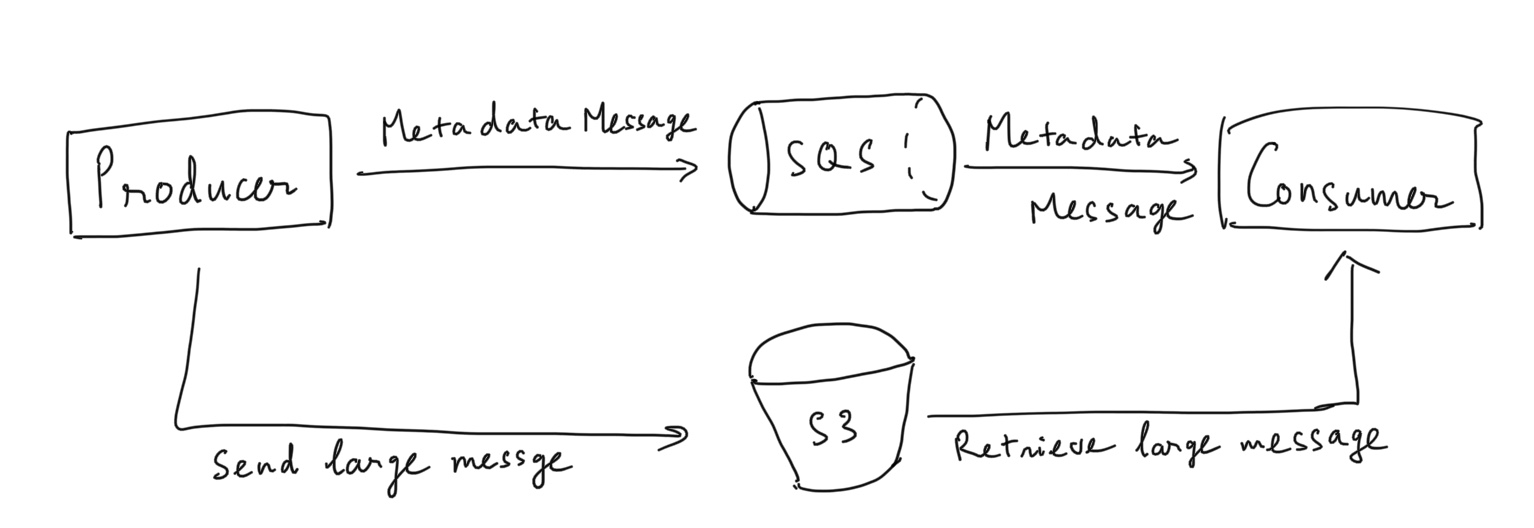 Metadata Message
Producer
SQS
Metadata
Message
Consumer
S3
Send large messge
Retrieve large message